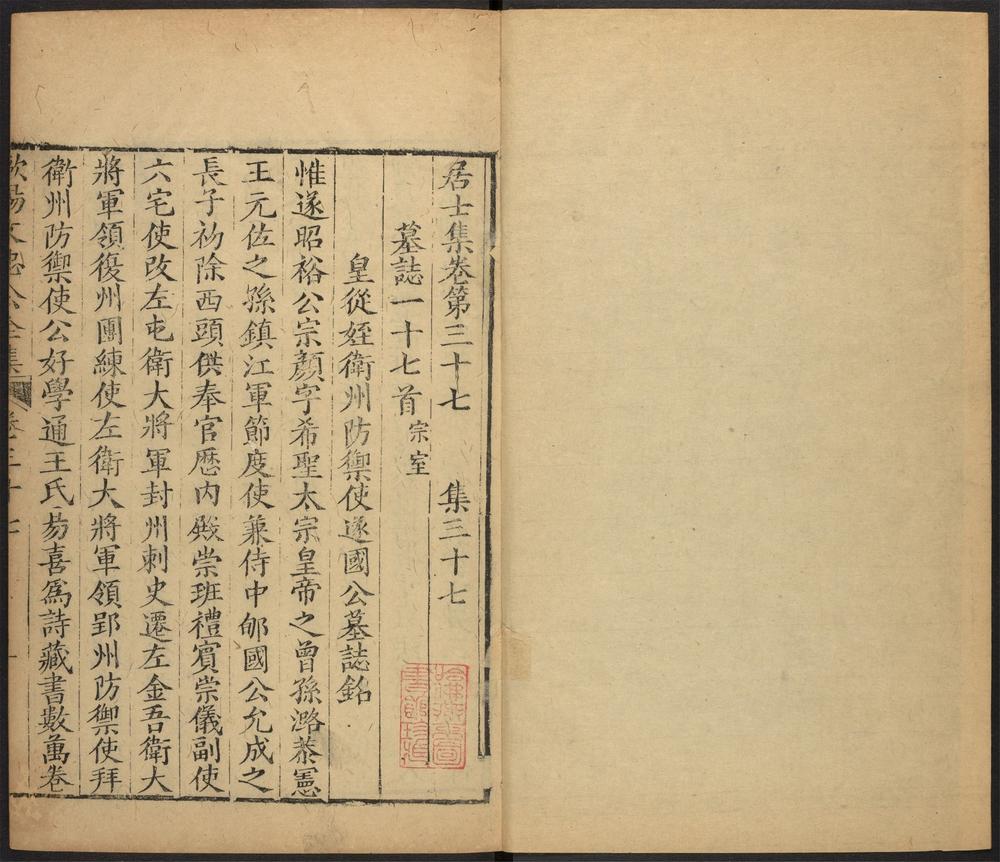 居士集卷第三十七　集三十七
墓誌一十七首宗室
皇從姪衛州防禦使遂國公墓誌銘
惟遂昭裕公宗顏字希聖太宗皇帝之曾孫潞恭憲
王元佐之孫鎮江軍節度使兼侍中郇國公允成之
長子初除西頭供奉官歷内殿崇班禮賓崇儀副使
六宅使改左屯衛大將軍封州刺史遷左金吾衛大
將軍領復州團練使左衛大將軍領郢州防禦使拜
衛州防禦使公好學通王氏易喜爲詩藏書數萬卷
歐陽文忠公全集　卷三十七　一